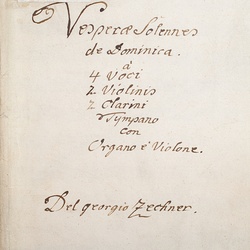 Vesperæ Solennes
de Dominica.
à
4 Voci
2 Violinis
2 Clarini
Tympano
con
Organo è Violone.
Del georgio Zechner.